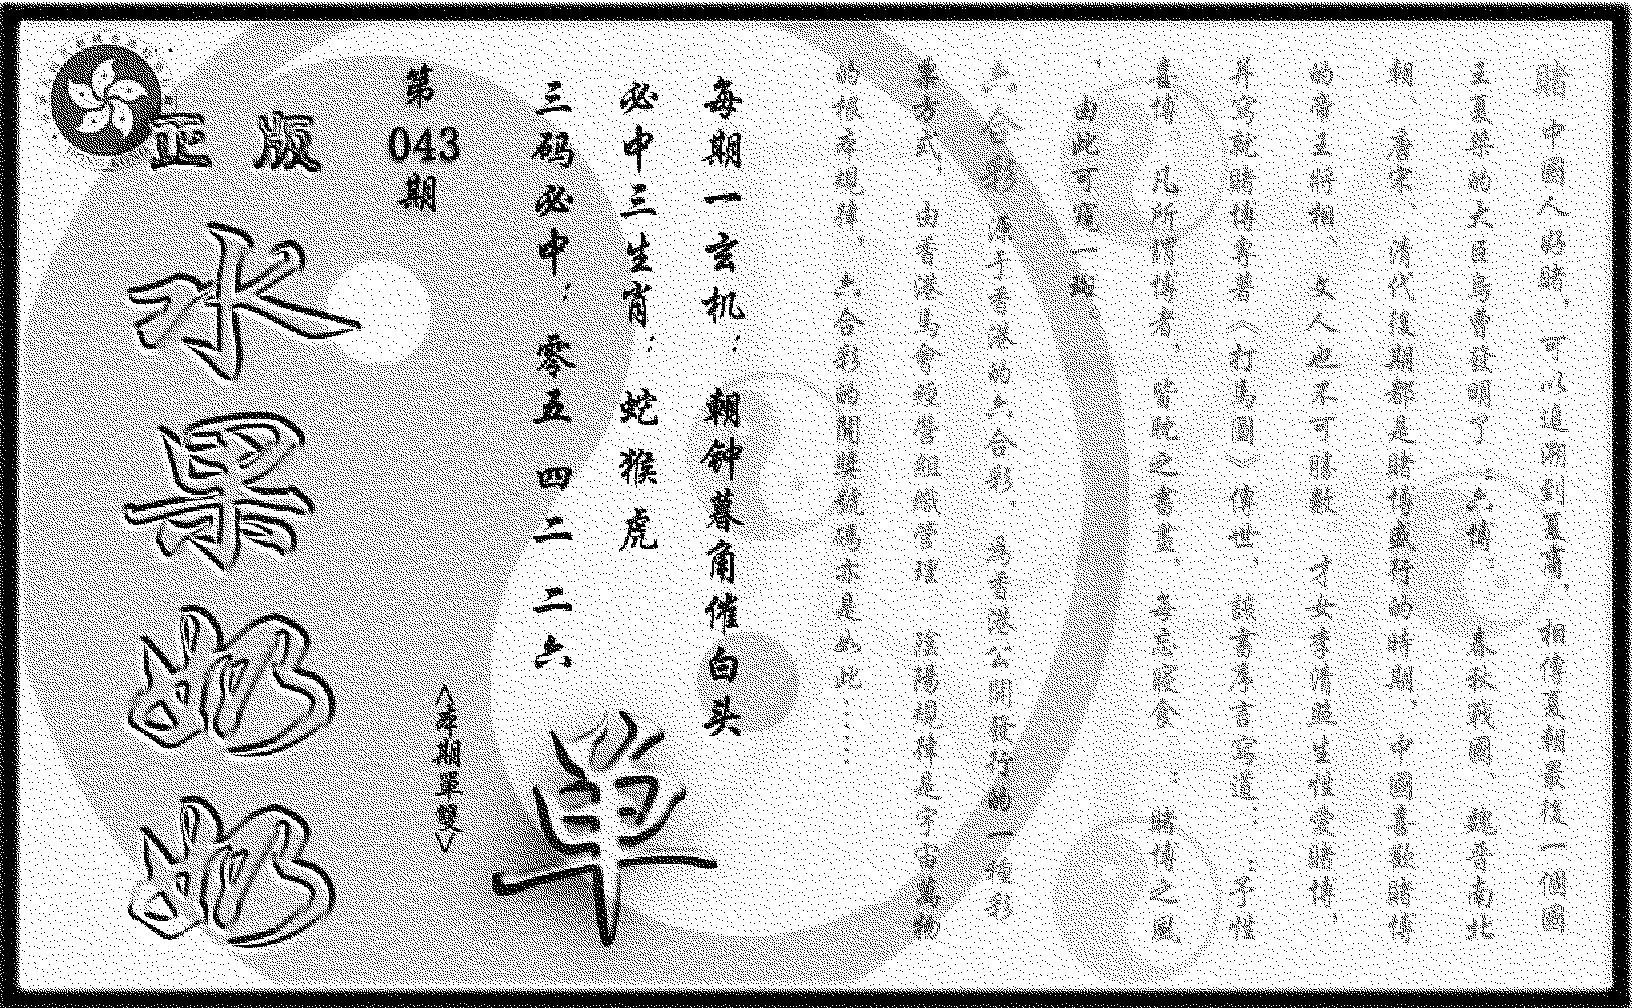 賭 中國人好賭，可以追溯到夏商，相傳夏朝最後一個國
王夏桀的大臣烏曹發明了；六博；春秋戰國、魏晉南北
朝、唐宋、清代後期都是賭博盛行的時期，中國喜歡賭博
的帝王將相、文人也不可勝數，才女李清照生性愛賭博，
并寫就賭博專著〈打馬圖〉傳世，該書序言寫道：；予性
喜博，凡所謂博者，皆耽之書畫，每忘寢食；賭博之風
，由此可窺一斑
六合彩，源于香港的六合彩，為香港公開發行的一種彩
票方式，由香港馬會經營組織管理 陰陽規律是宇宙萬物
的根本規律，六合彩的開獎號碼亦是如此……
每期一玄机：朝钟暮角催白头
必中三生肖：蛇猴虎
三码必中：零五 四二 二六
单
第043期
〈本期單雙〉
正版
水果奶奶